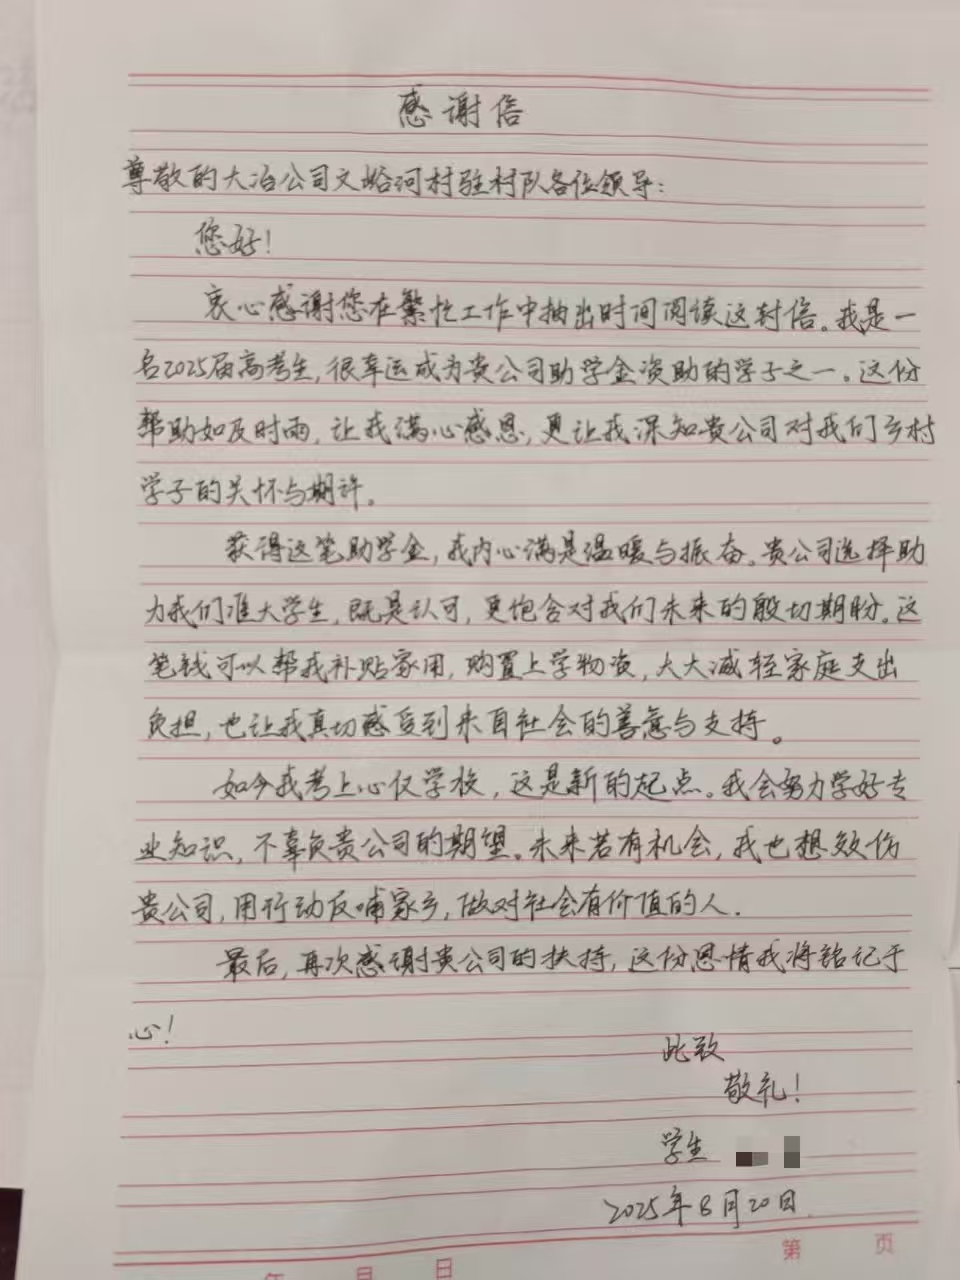 感谢信
尊敬的大冶公司文峪河村驻村队各位领导：
您好！
衷心感谢您在繁忙工作中抽出时间阅读这封信。我是一
名2025届高考生，很幸运成为贵公司助学金资助的学子之一。这份
帮助如及时雨，让我满心感恩，更让我深知贵公司对我们乡村
学子的关怀与期许。
获得这笔助学金，我内心满是温暖与振奋。贵公司选择助
力我们准大学生，既是认可，更饱含对我们未来的殷切期盼。这
笔钱可以帮我补贴家用，购置上学物资，大大减轻家庭支出
负担，也让我真切感受到来自社会的善意与支持。
如今我考上心仪学校，这是新的起点。我会努力学好专
业知识，不辜负贵公司的期望。未来若有机会，我也想效仿
贵公司，用行动反哺家乡，做对社会有价值的人.
最后，再次感谢贵公司的扶持，这份恩情我将铭记于
心！
此致
敬礼！
学生
2025年8月20日
第 页
年 月 日